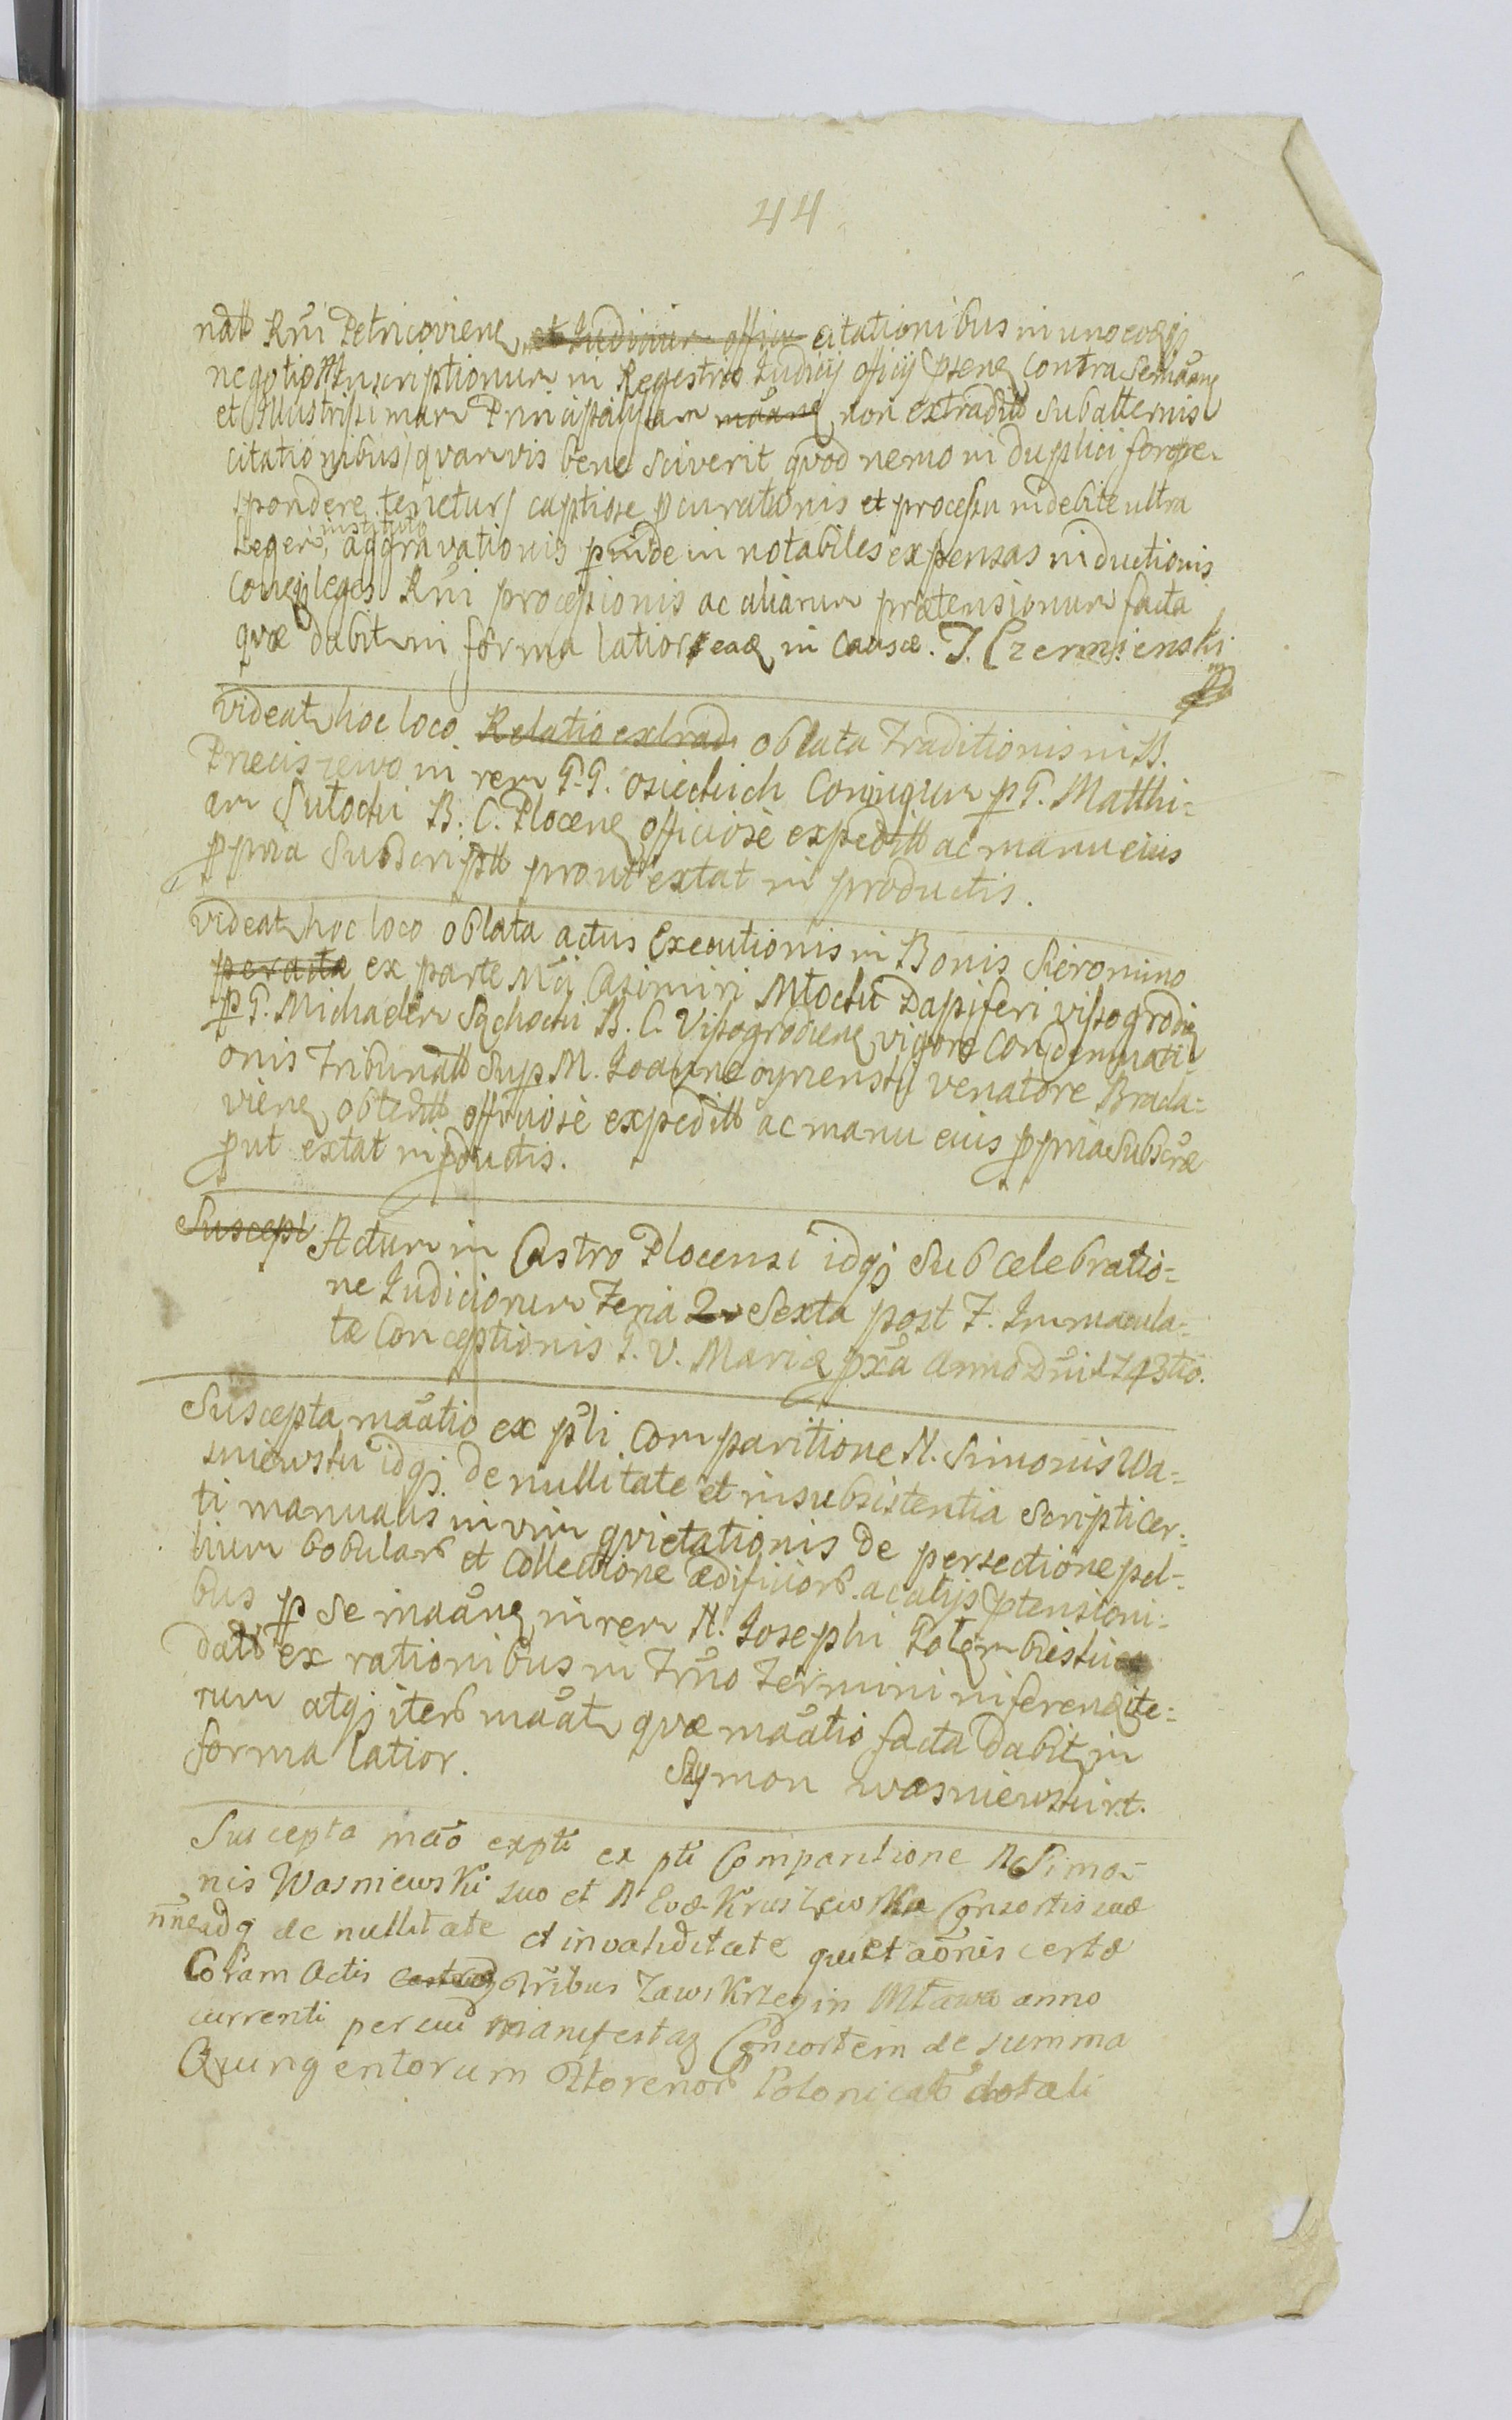 44
natt Rni Petricovien et Iudiciur officu citationibus in uno eodqj
negotio Inscriptionum in Regestris Iudicij officij pten contra se
et Illustrissimam Principissam non extraditt subalternis
citationibus quamvis bene sciverit quod nemo in duplici foro re-
spondere tenetur captiose pcurationis et processu indebite ultra
Legem, instituto aggravationis pinde in notabiles expensas inductionis
Contrqj leges Rni processionis ac aliarum prætensionum facta
quæ dabit in forma latior ead in causa. J. Czermienski
videat hoc loco Relatio extrad oblata Traditionis in B.
Preciszewo in rem G. G. Osieckich Coniugum p G. Matthi-
am Sutocki B. C. Plocen officiosè expeditt ac manu eius
ppria Subscriptt prout extat in productis.
videat hoc loco oblata actus Executionis in Bonis Sieromino
peracta ex parte Mci Casimiri Mtocki Dapiferi vissogrodien
p G. Michaelem Sochocki B. C. Vissogrodien vigore Condemnati-
onis Tribunatt Sup M. Ioanne venatore Bracla-
vien obtentt officiosè expeditt ac manu eius ppria Subscræ
put extat in pductis.
Suscepi Actum in Castro Plocensi idqj sub celebratio-
ne Iudiciorum Feria 2 Sexta post F. Immacula-
tæ Conceptionis B. V. Mariæ pxa Anno Dni 1743tio.
Suscepta maatio ex psli comparitione N. Simonis Wa-
sniewski idqj de nullitate et insubsistentia scripti cer-
ti manualis in vim qvietationis de persectione pel-
lium bobular et collectione ædificior. ac alijs ptensioni-
bus p se in rem N. Iosephi
datt ex rationibus in Trno Termini inferen ite-
rum atqj iter maat quæ maatio facta dabit in
forma latior. Szymon wasniewski rt.
Suscepta mao expti ex pti Comparitione N Simo-
nis Wasniewski suo et N Evæ Consortis suæ
nne adq de nullitate et invaliditate quietaonis certæ
Coram Actis Tribus Zawskrzen in Mtawa anno
currenti per suu manifestan Consortem de summa
Quingentorum fflorenor Polonicalt dotali